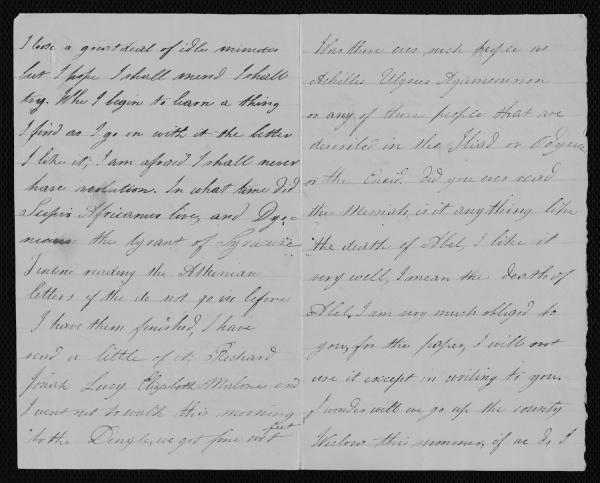 I lose a great deal of idle minutes
but I hope I shall mend I shall
try. Whe I begin to learn a thing
I find as I go on with it the better
I like it, I am afraid I shall never
have resolution. In what time did
Scipio Africanus live, and Dyo=
nicius the tyrant of Syracuse
I intend reading the Athenian
letters if the do not go in before
I have them finished, I have
read a little of it. Richard
Josiah Lucy Elizabeth Malone and
I went out to walk this morning
to the Dingle, we got fine wet feet
Was there ever such people as
Achilles Ulysses Agamemnon
or any of those people that are
descriled in the Iliad or Odyssey
or the Eneid. did you ever read
the Messiah, is it any thing like
the death of Abel, I like it
very well, I mean the death of
Abel, I am very much obliged to
you, for the paper, I will not
use it except in writing to you.
I wonder will we go up the county
Wiclow this summer, if we do I